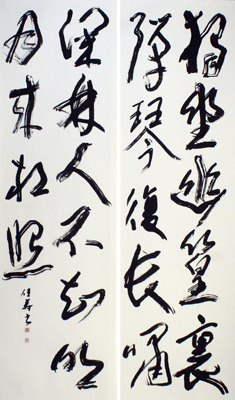 獨坐幽篁裏
彈琴復長嘯
深林人不知明
月來相照